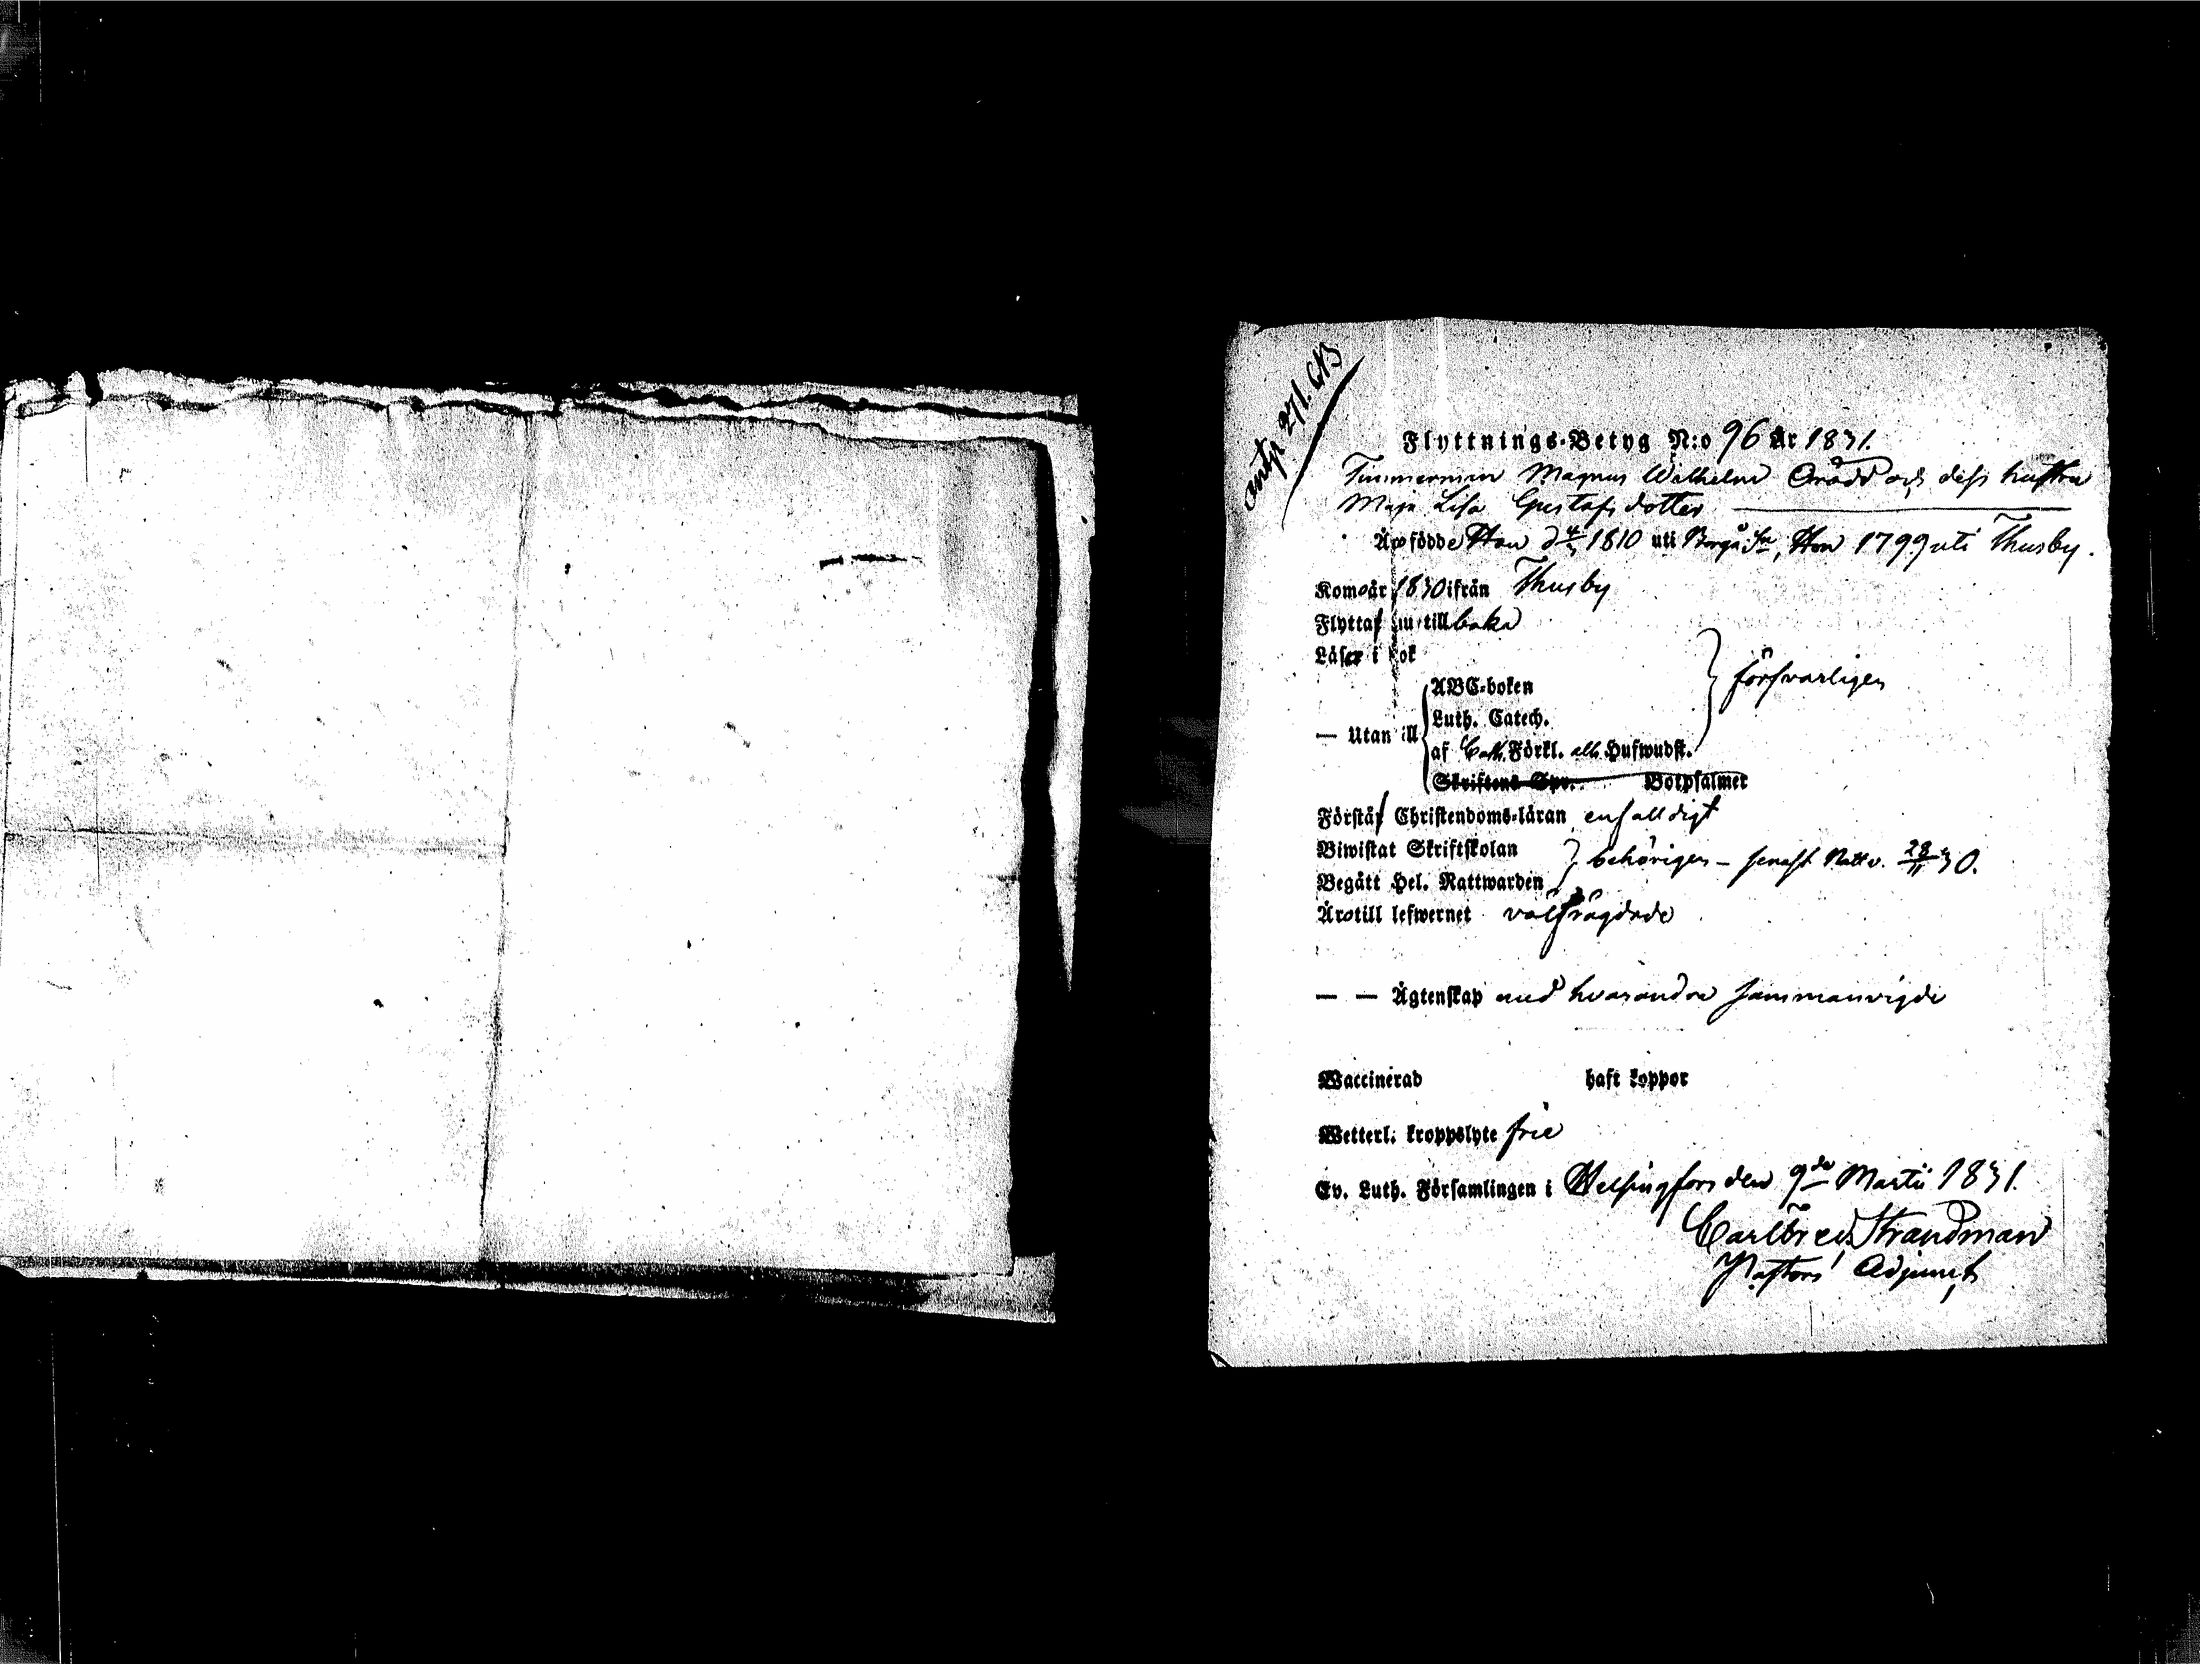 antp. 271. CB
Flyttnings-Betyg N:o 96 År 1831.
Timmerman Magnus Wilhelm och dess hustru
Maja Lisa Gustafsdotter
Äro födde Han d 1810 uti Borgå Sn, Hon 1799 uti Thusby.
Kom år 1830 ifrån Thusby
Flytta nu tillbaka
Läser i bok
ABC-boken
försvarligen
Luth. Catech.
— Utan till
af Cat. Förkl. alla Hufwudst.
Skriftens Spr. Botpsalmer
Förstå Christendoms-läran enfalldigt
Biwistat Skriftskolan
behörigen – senast Nattv. 28/11 30.
Begått Hel. Nattwarden
Äro till lefwernet välfrägdade
— — Ägtenskap med hvarandra sammanvigde
Waccinerad haft koppor
Wetterl. kroppslyte frie
Ev. Luth. Församlingen i Helsingfors den 9de Martii 1831.
Carl Strandman
Pastors Adjunct